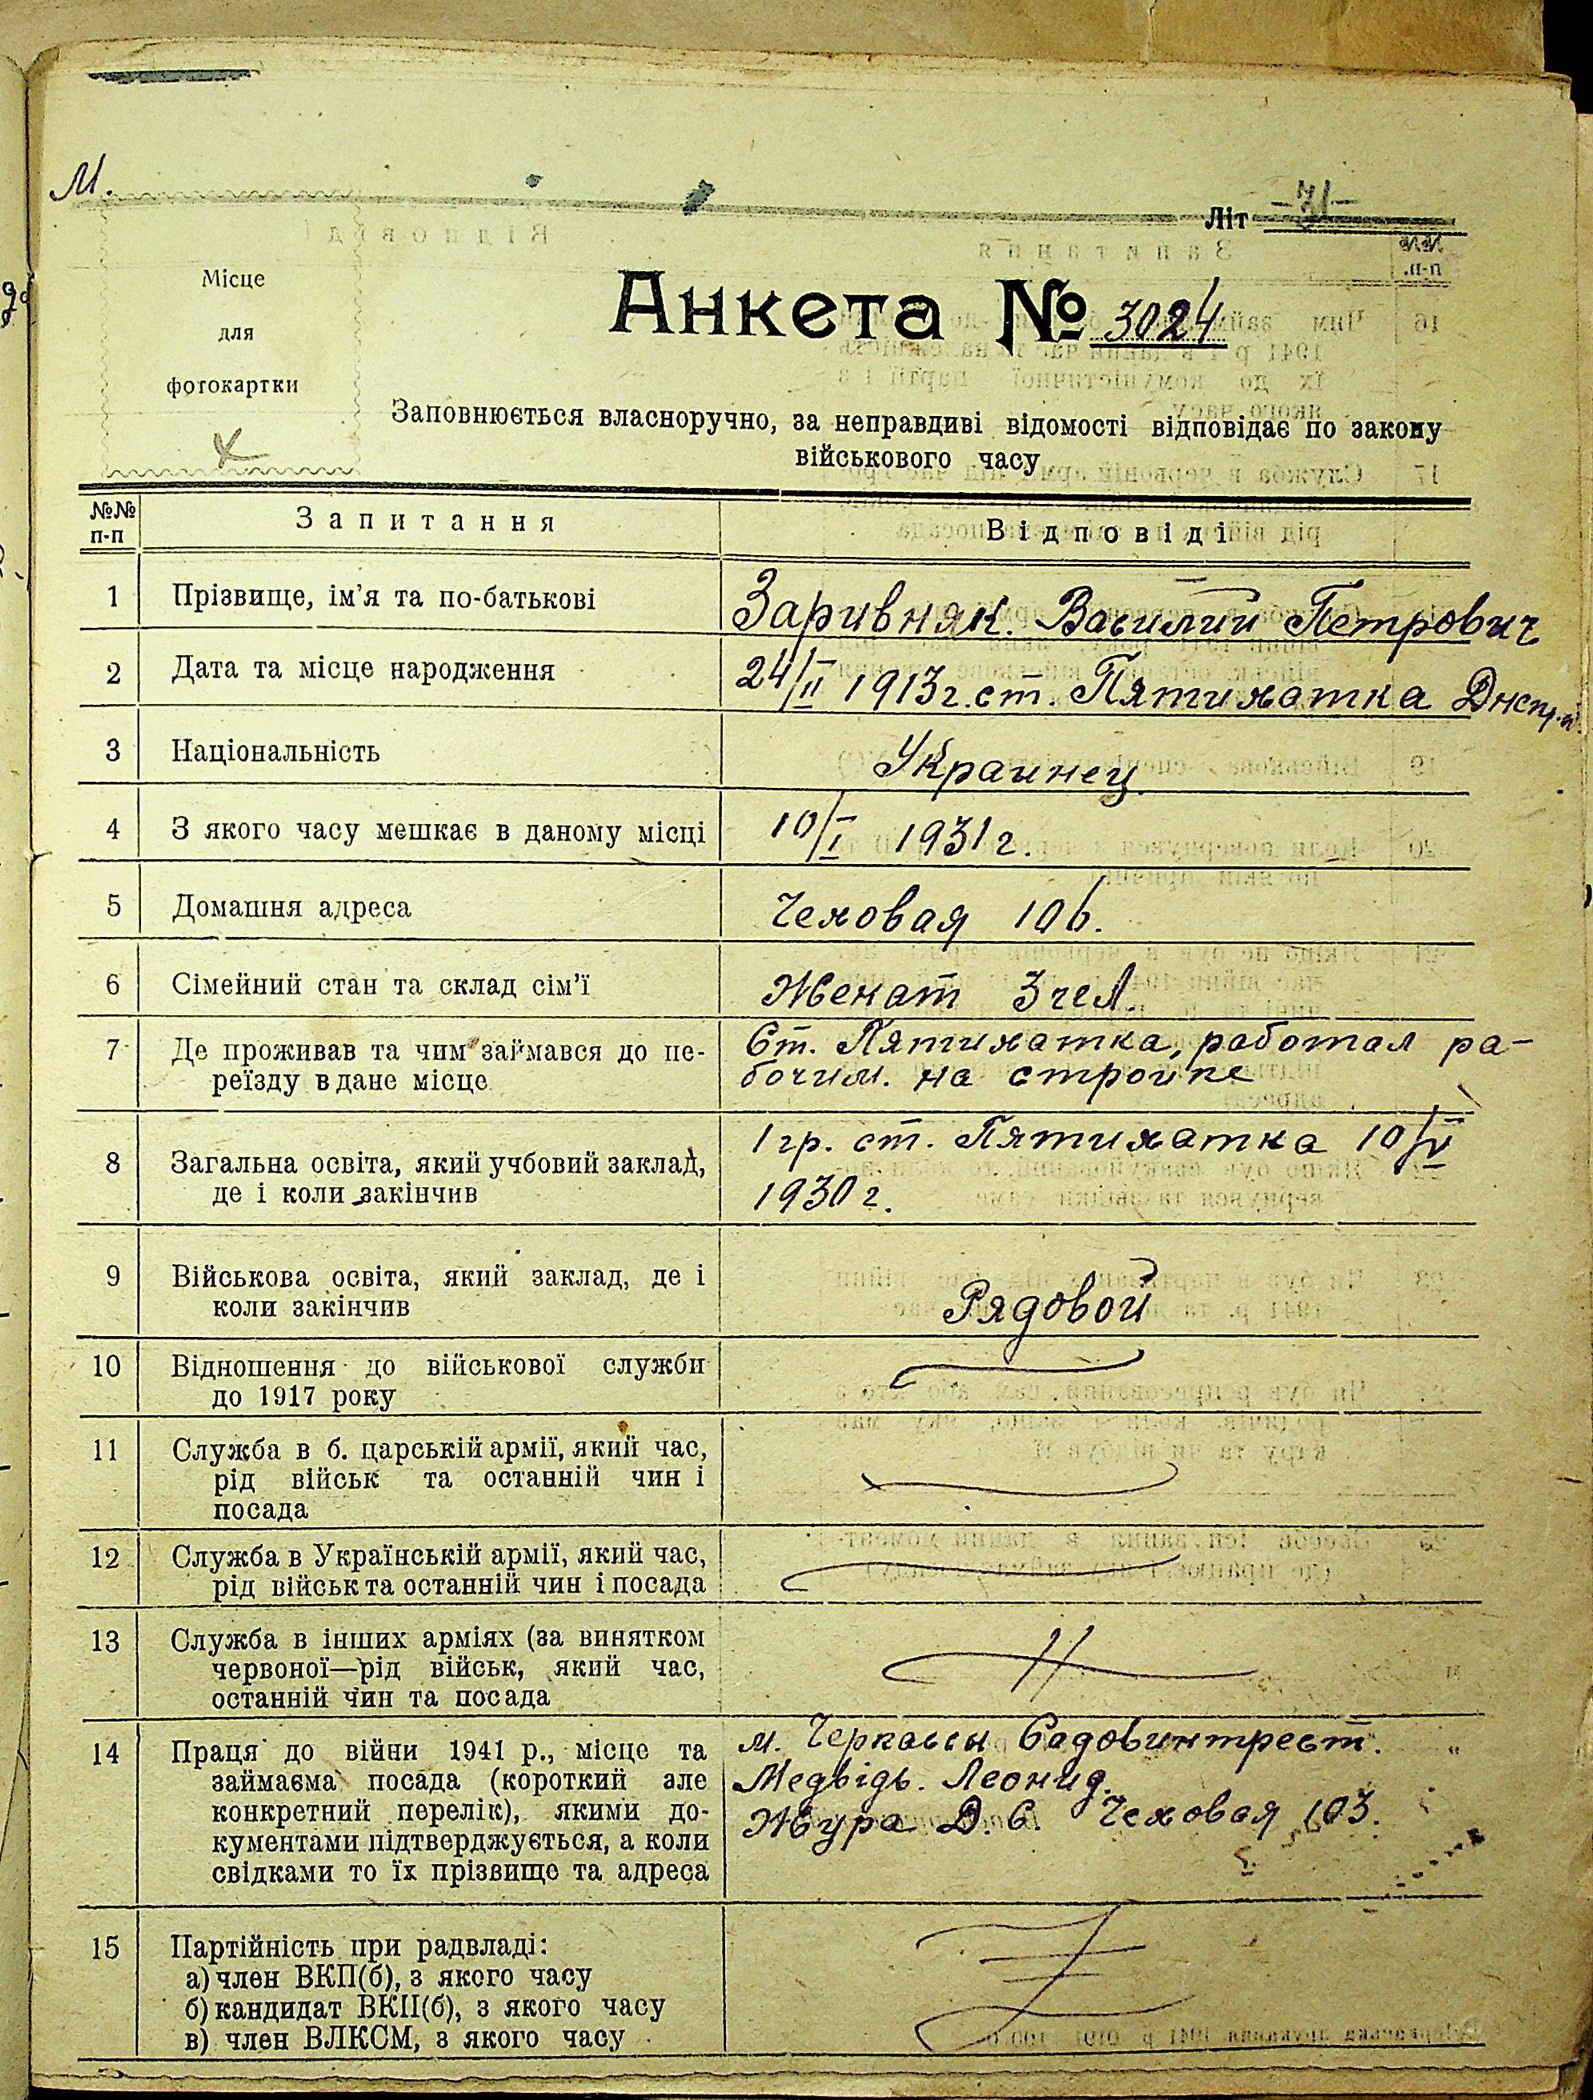 М.
Літ -71-
Місце
для
фотокартки
Анкета № 3024
Заповнюється власноручно, за неправдиві відомості відповідає по закону
військового часу
№№ п-п Запитання Відповіді
1 Прізвище, ім'я та по-батькові Заривняк. Василий Петрович
2 Дата та місце народження 24/II 1913г. ст. Пятихатка
3 Національність Украинец
4 З якого часу мешкає в даному місці 10/I 1931г.
5 Домашня адреса Чеховая 106.
6 Сімейний стан та склад сім'ї Женат 3 чел.
7 Де проживав та чим займався до пе- Ст. Пятихатка, работал ра-
реїзду в дане місце бочим. на стройке
8 Загальна освіта, який учбовий заклад, 1 гр. ст. Пятихатка 10/IV
де і коли закінчив 1930г.
9 Військова освіта, який заклад, де і
коли закінчив Рядовой
10 Відношення до військової служби
до 1917 року
11 Служба в б. царській армії, який час,
рід військ та останній чин і
посада
12 Служба в Українській армії, який час,
рід військ та останній чин і посада
13 Служба в інших арміях (за винятком
червоної—рід військ, який час,
останній чин та посада
14 Праця до війни 1941 р., місце та м. Черкассы Садовинтрест.
займаєма посада (короткий але Медвідь. Леонид.
конкретний перелік), якими до- Жура Д. С Чеховая 103.
кументами підтверджується, а коли
свідками то їх прізвище та адреса
15 Партійність при радвладі:
а) член ВКП(б), з якого часу
б) кандидат ВКП(б), з якого часу
в) член ВЛКСМ, з якого часу